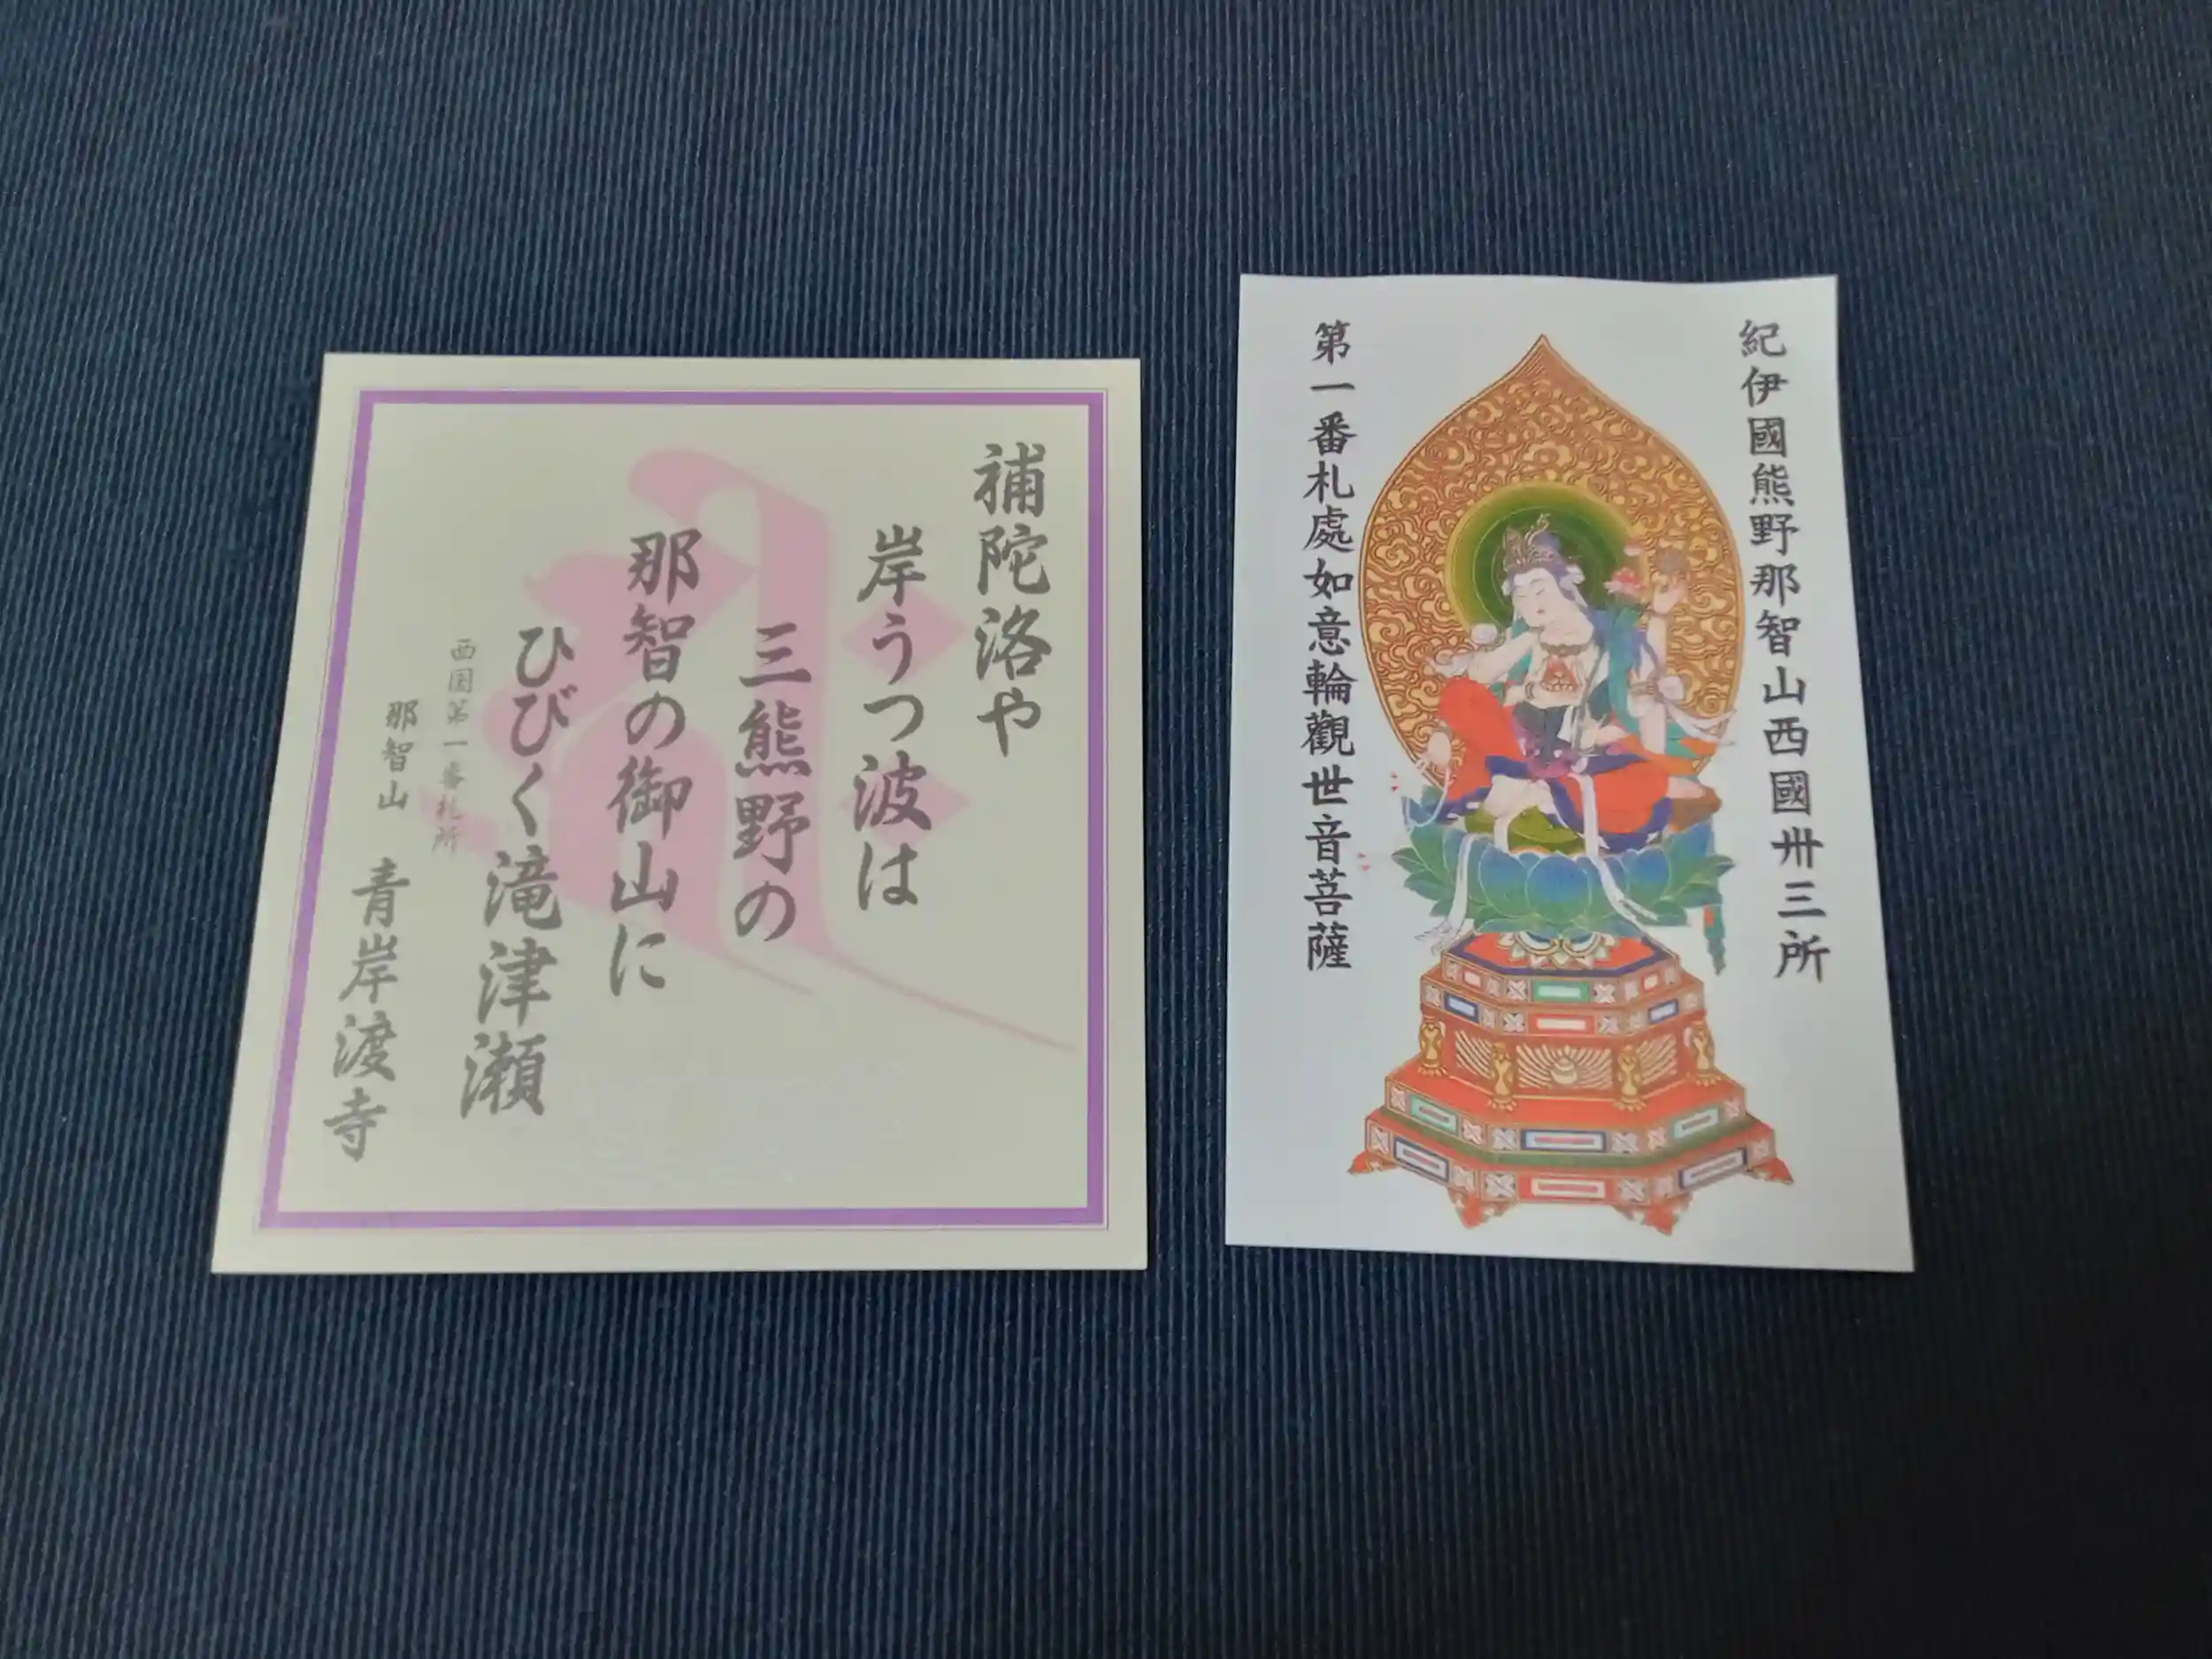 補陀洛や
岸うつ波は
三熊野の
那智の御山に
ひびく滝津瀬
西国第一番札所
那智山 青岸渡寺
紀伊國熊野那智山西國卅三所
第一番札處如意輪觀世音菩薩